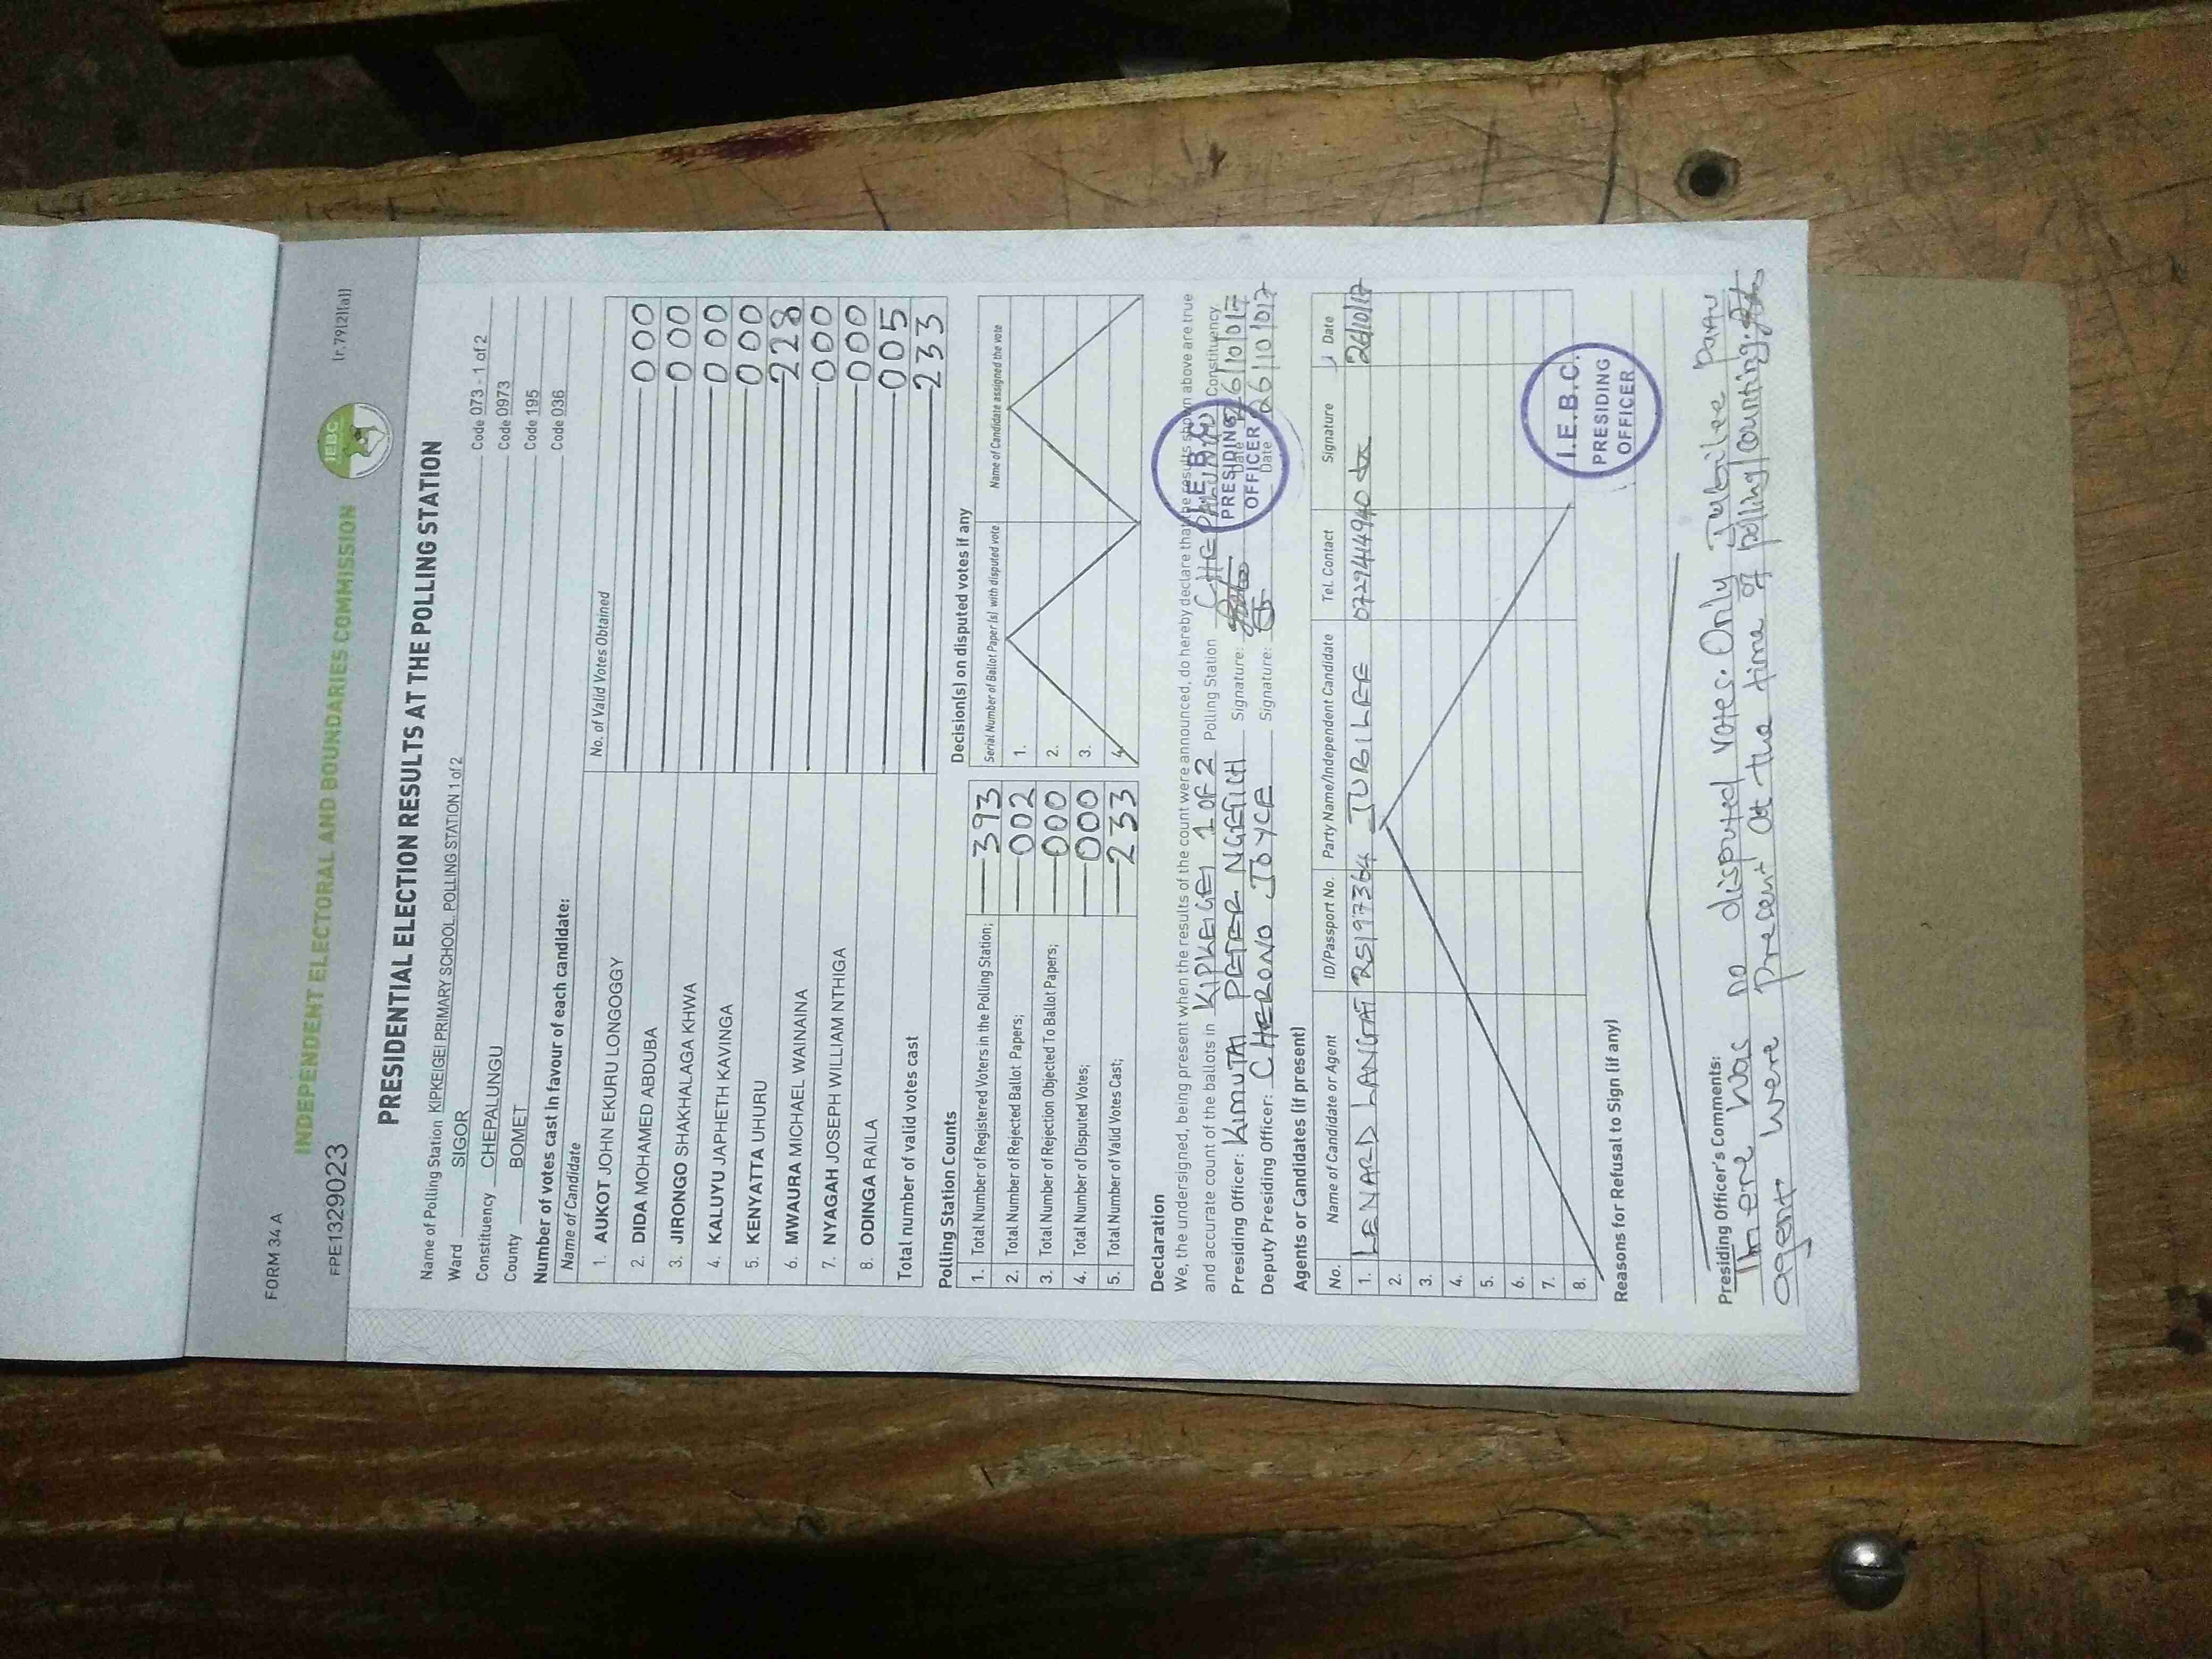 FORM 34 A
(r.79(2)(a))
INDEPENDENT ELECTORAL AND BOUNDARIES COMMISSION
IEBC
FPE1329023
PRESIDENTIAL ELECTION RESULTS AT THE POLLING STATION
Name of Polling Station KIPKEIGEI PRIMARY SCHOOL. POLLING STATION 1 of 2 Code 073 - 1 of 2
Ward SIGOR Code 0973
Constituency CHEPALUNGU Code 195
County BOMET Code 036
Number of votes cast in favour of each candidate:
Name of Candidate No. of Valid Votes Obtained
1. AUKOT JOHN EKURU LONGOGGY 000
2. DIDA MOHAMED ABDUBA 000
3. JIRONGO SHAKHALAGA KHWA 000
4. KALUYU JAPHETH KAVINGA 000
5. KENYATTA UHURU 228
6. MWAURA MICHAEL WAINAINA 000
7. NYAGAH JOSEPH WILLIAM NTHIGA 000
8. ODINGA RAILA 005
Total number of valid votes cast 233
Polling Station Counts
1. Total Number of Registered Voters in the Polling Station; 393
2. Total Number of Rejected Ballot Papers; 002
3. Total Number of Rejection Objected To Ballot Papers; 000
4. Total Number of Disputed Votes; 000
5. Total Number of Valid Votes Cast; 233
Decision(s) on disputed votes if any
Serial Number of Ballot Paper (s) with disputed vote Name of Candidate assigned the vote
1.
2.
3.
4.
Declaration
We, the undersigned, being present when the results of the count were announced, do hereby declare that the results shown above are true
and accurate count of the ballots in KIPKEIGEI 1 OF 2 Polling Station CHEPALUNGU Constituency
Presiding Officer: KIMUTAI PETER NGETICH Signature: Date 26/10/017
Deputy Presiding Officer: CHERONO JOYCE Signature: Date 26/10/017
I.E.B.C. PRESIDING OFFICER
Agents or Candidates (if present)
No. Name of Candidate or Agent ID/Passport No. Party Name/Independent Candidate Tel. Contact Signature Date
1. LENARD LANGAT 25197364 JUBILEE 0729414940 26/10/17
2.
3.
4.
5.
6.
7.
8.
I.E.B.C. PRESIDING OFFICER
Reasons for Refusal to Sign (if any)
Presiding Officer's Comments:
There was no disputed votes. Only Jubilee party
agent were precent at the time of polling/counting.